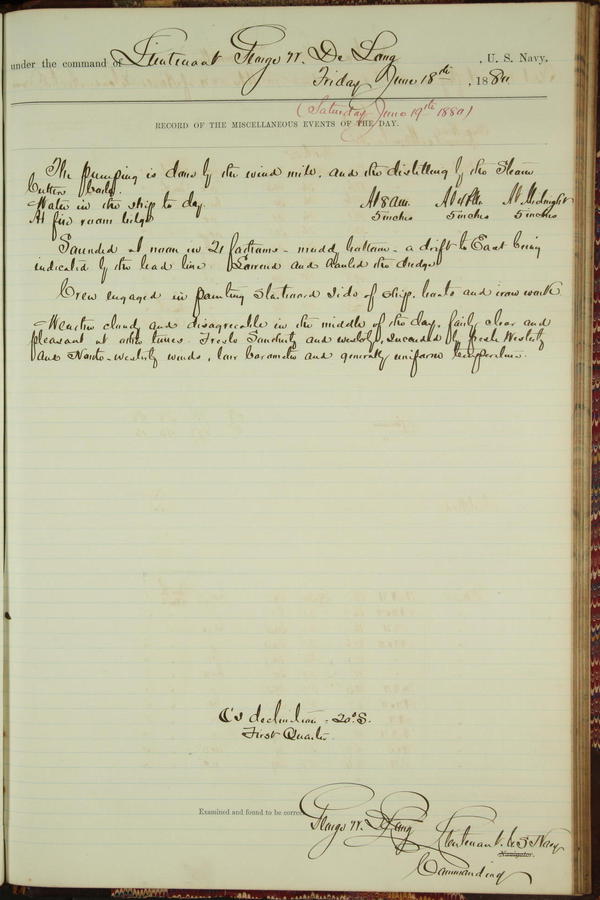 under the command of Lieutenant George W. De Long, U. S. Navy,
Friday June 18th, 1880
(Saturday June 19th 1880)
RECORD OF THE MISCELLANEOUS EVENTS OF THE DAY.
The pumping is done by the wind mill, and the distilling by the Steam
Cutters boiler.
Water in the ship to day. At 8 a.m. At 4 P.M. At Midnight
At fire room bilge 5 inches 5 inches 5 inches
Sounded at noon in 21 fathoms - muddy bottom - a drift to East being
indicated by the lead line. Lowered and hauled the dredge
Crew engaged in painting starboard side of ship, boats and iron work.
Weather cloudy and disagreeable in the middle of the day, fairly clear and
pleasant at other times. Fresh Southerly and westerly, succeeded by fresh Westerly
and North-westerly winds, low barometer and generally uniform temperature.
☾'s declination = 20° S.
First Quarter
Examined and found to be correct.
George W. De Long Lieutenant. U.S Navy
Navigator.
Commanding